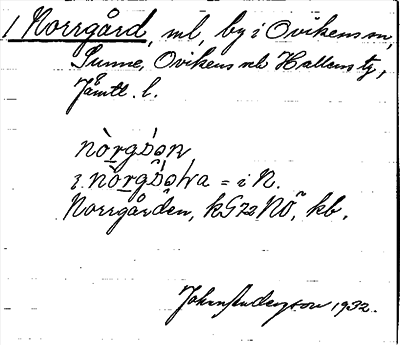 1 Norrgård, ml, by i Ovikens sn,
Sunne, Ovikens o Hallens tg,
Jämtl. l.
nòrgɒ̀ən
i nòrgɒ̀əna = i N.
Norrgården, kG 72 NÖ, kb.
Johan Anderson 1932.